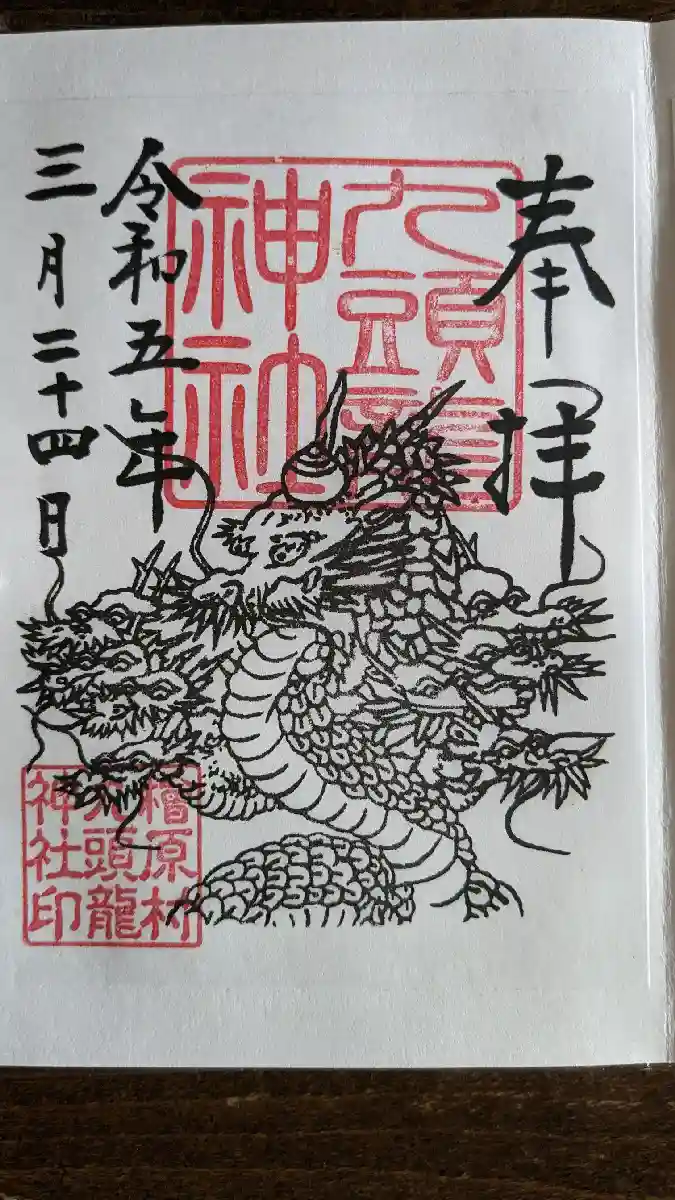 奉拝
九頭龍
神社
令和五年
三月二十四日
檜原村
九頭龍
神社印